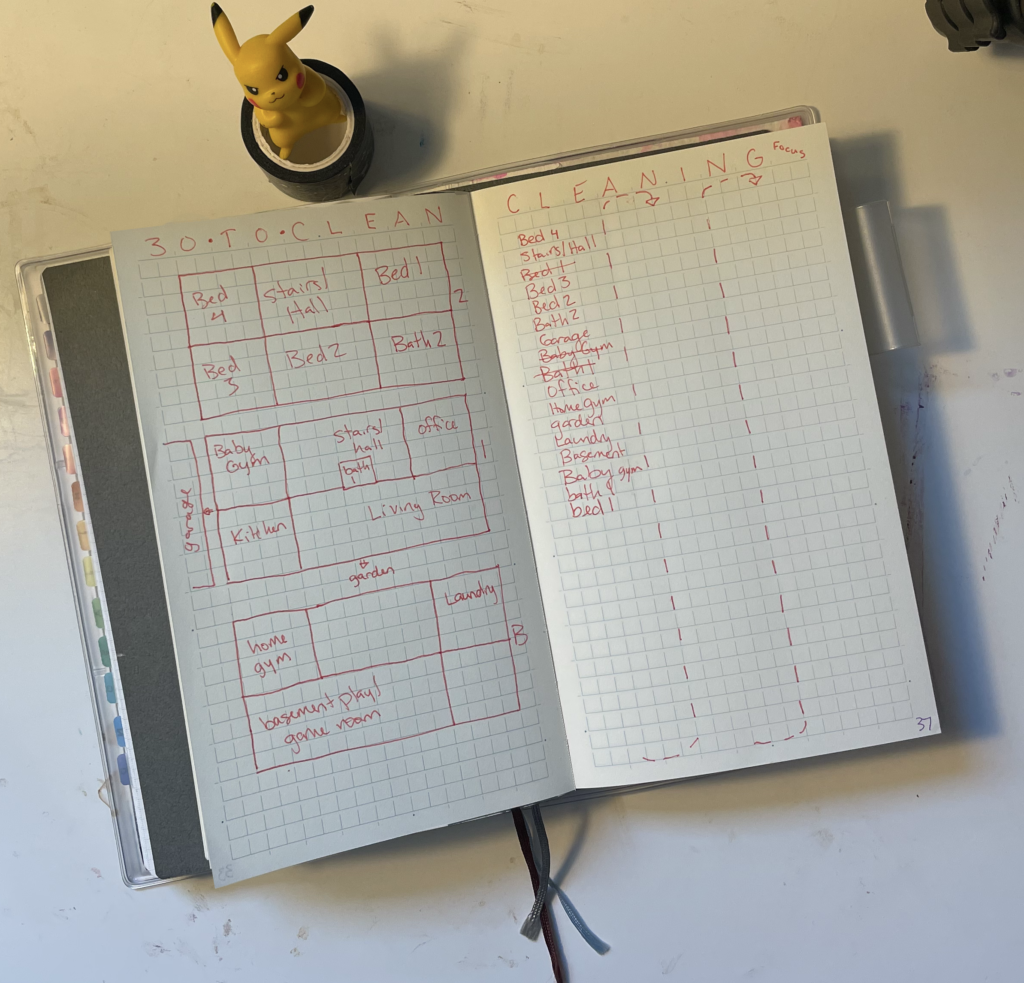 30·TO·CLEAN
Bed
4
Stairs/
Hall
Bed 1
2
Bed
3
Bed 2
Bath 2
garage
Baby
Gym
Stairs/
hall
bath
1
office
1
Kitchen
Living Room
garden
home
gym
Laundry
B
basement play/
game room
CLEANING Focus
Bed 4
Stairs/Hall
Bed 1
Bed 3
Bed 2
Bath 2
Garage
Baby Gym
Bath 1
Office
Home gym
garden
Laundry
Basement
Baby gym
bath 1
bed 1
37